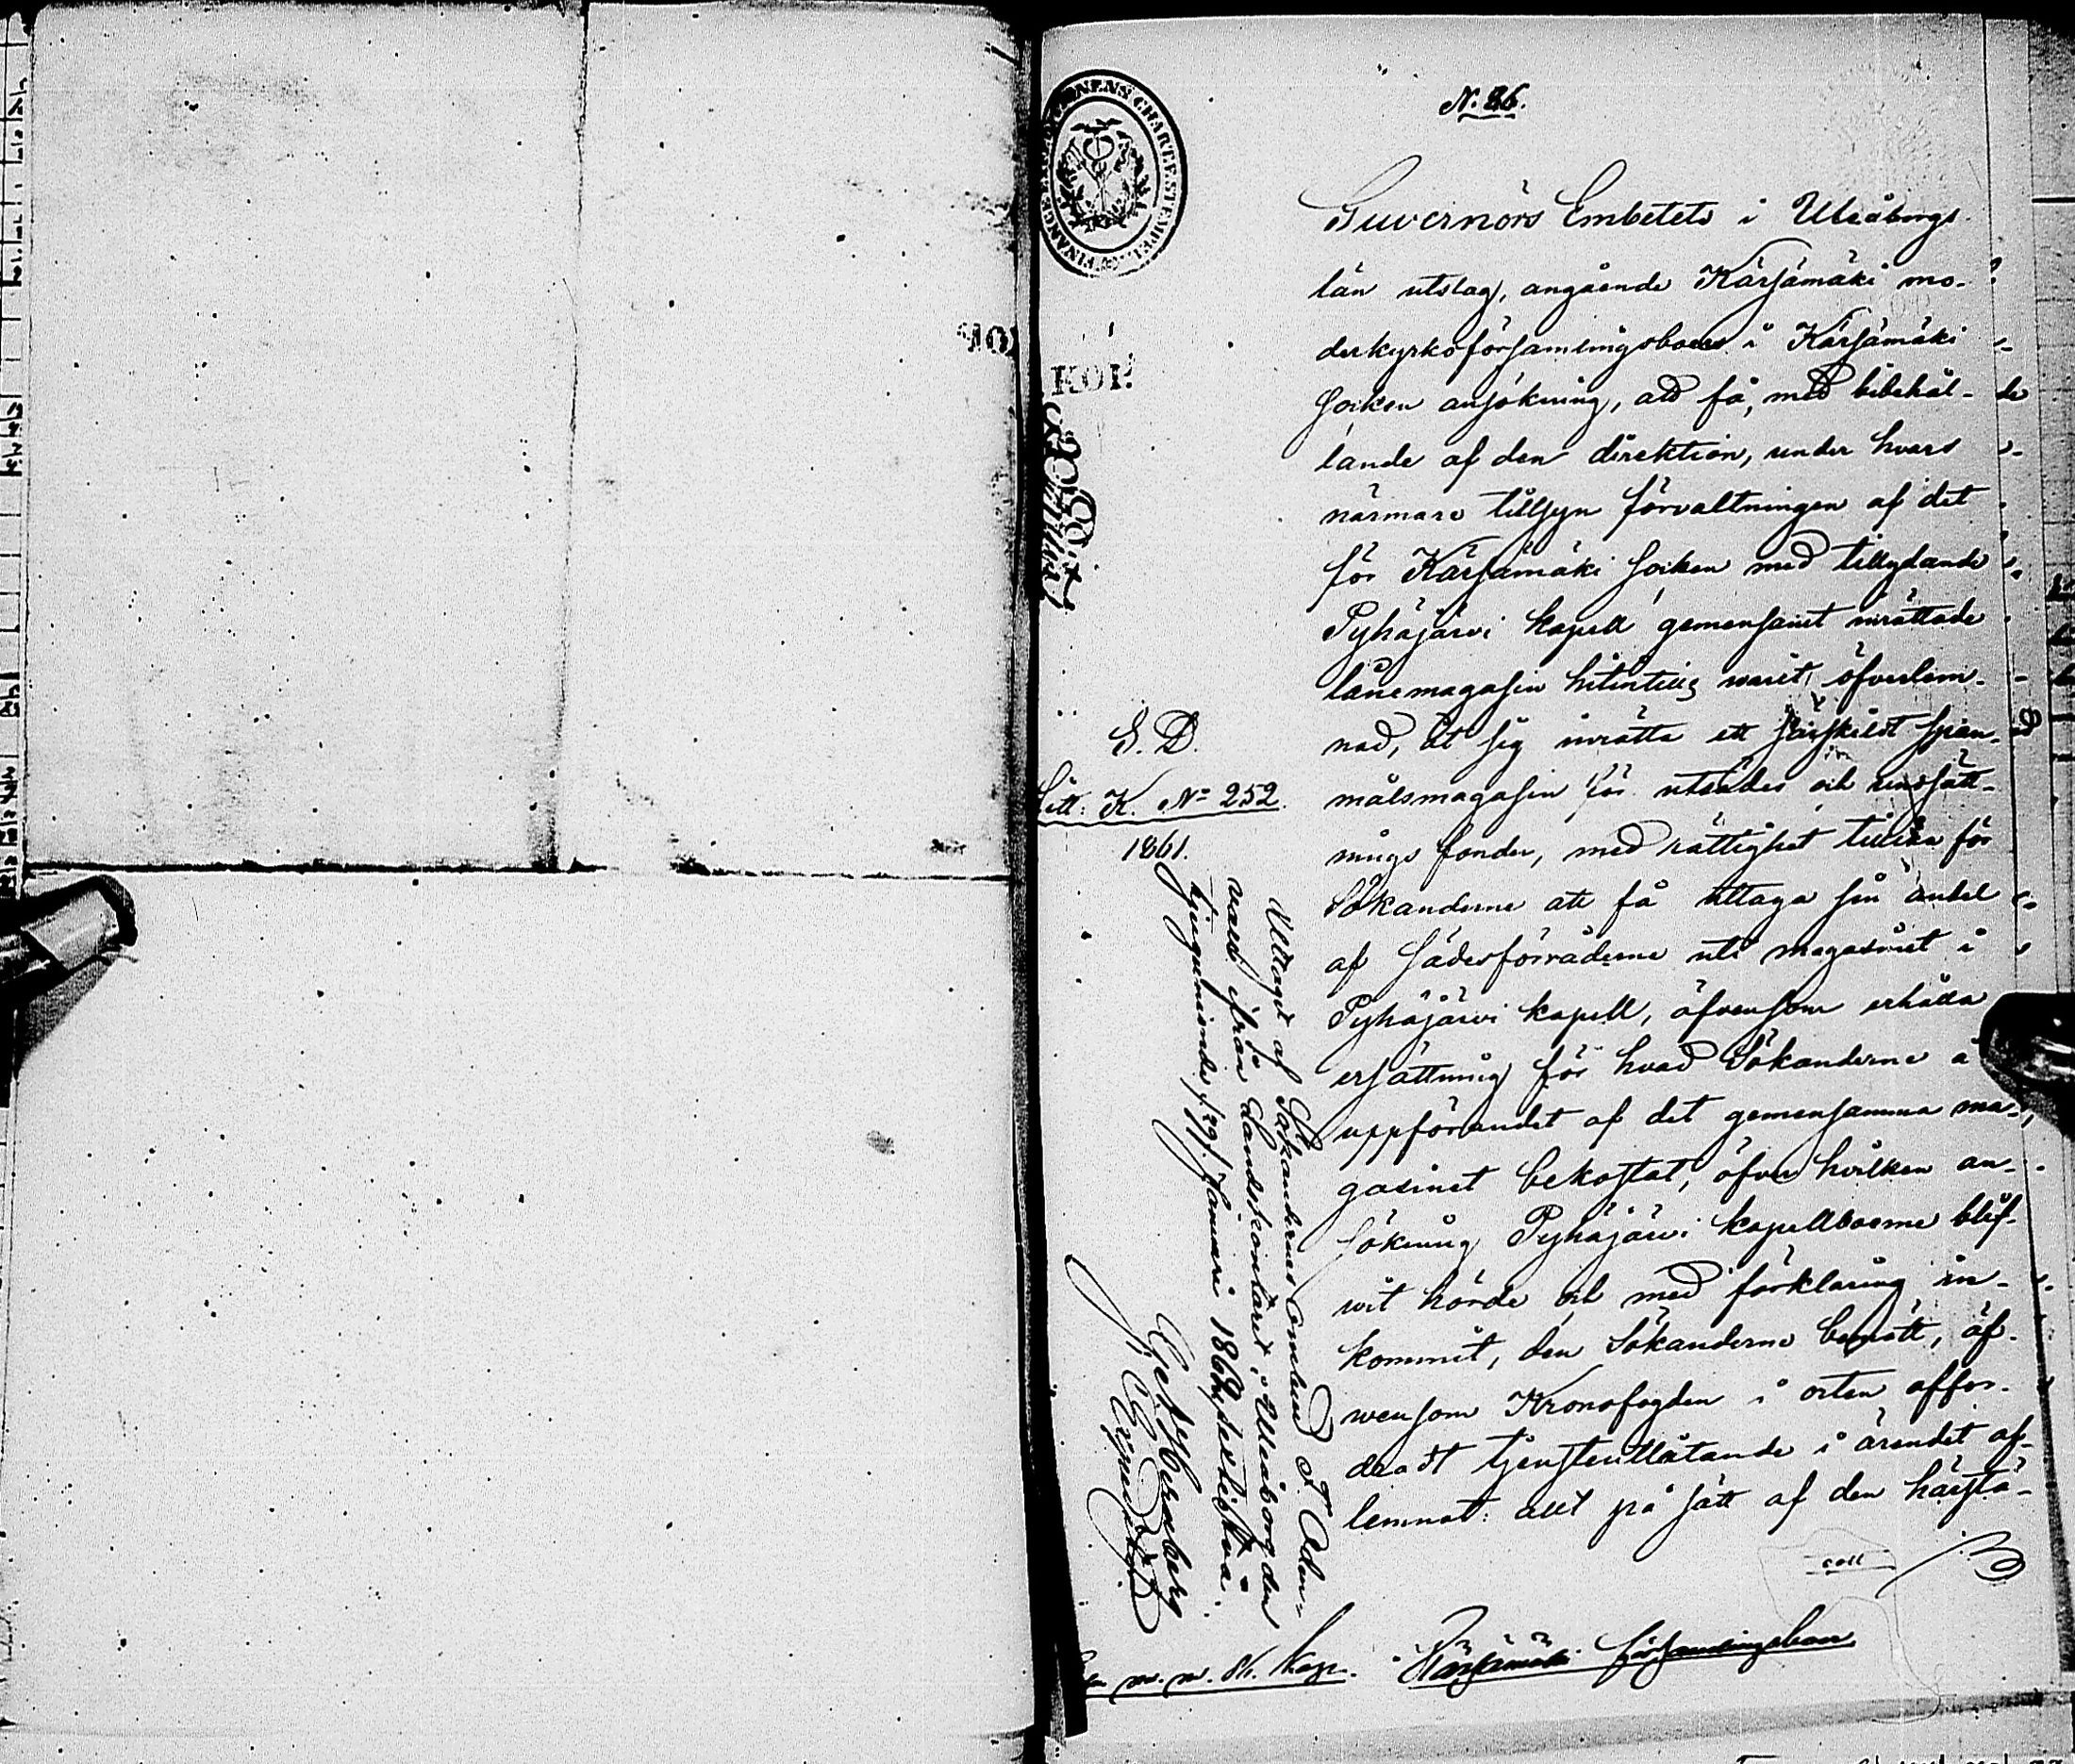 N. 26.
Guvernörs Embetets i Uleåborgs
län utslag, angående Kärsämäki mo-
derkyrkoförsamlingsboers i Kärsämäki
socken ansökning, att få, med bibehål-
lande af den direktion, under hvars
närmare tillsyn förvaltningen af det
för Kärsämäki socken med tillydande
Pyhäjärvi kapell gemensamt inrättade
lånemagasin hitintills warit öfverlem-
nad, åt sig inrätta ett särskildt span-
målsmagasin för utsädes och undsätt-
nings fonder, med rättighet tillika för
Sökanderne att få uttaga sin andel
af sädesförråderne uti magasinet i
Pyhäjärvi kapell, äfvensom erhålla
ersättning för hvad Sökanderne å
uppförandet af det gemensamma ma-
gasinet bekostat, öfver hvilken an-
sökning Pyhäjärvi kapellboerne blif-
wit hörde och med förklaring in-
kommit, den Sökanderne bemött, äf-
wensom Kronofogden i orten affor-
dradt tjensteutlåtande i ärendet af-
lemnat: allt på sätt af den härstä-
coll
S. D.
Litt: K. No 252.
1861.
Uttaget af Sökandernes ombud F. Aden-
vall ifrån Landskontoret i Uleåborg den
tjugunionde /29/ Januari 1862, betygas
m. m. Kärsämäki församlingsboer
FINANCE CHARTÆ STEMPEL